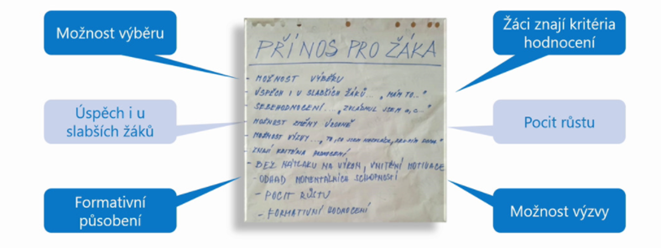 Možnost výběru
Úspěch i u
slabších žáků
Formativní
působení
PŘÍNOS PRO ŽÁKA
- MOŽNOST VÝBĚRU
- ÚSPĚCH I U SLABŠÍCH ŽÁKŮ... „MÁM TO..."
- SEBEHODNOCENÍ...
- MOŽNOST ZMĚNY ÚROVNĚ
- MOŽNOST VÝZVY...
- ZNAJÍ KRITÉRIA HODNOCENÍ
- BEZ NÁTLAKU NA VÝKON, VNITŘNÍ MOTIVACE
- ODRAZ MOMENTÁLNÍCH SCHOPNOSTÍ
- POCIT RŮSTU
- FORMATIVNÍ HODNOCENÍ
Žáci znají kritéria
hodnocení
Pocit růstu
Možnost výzvy